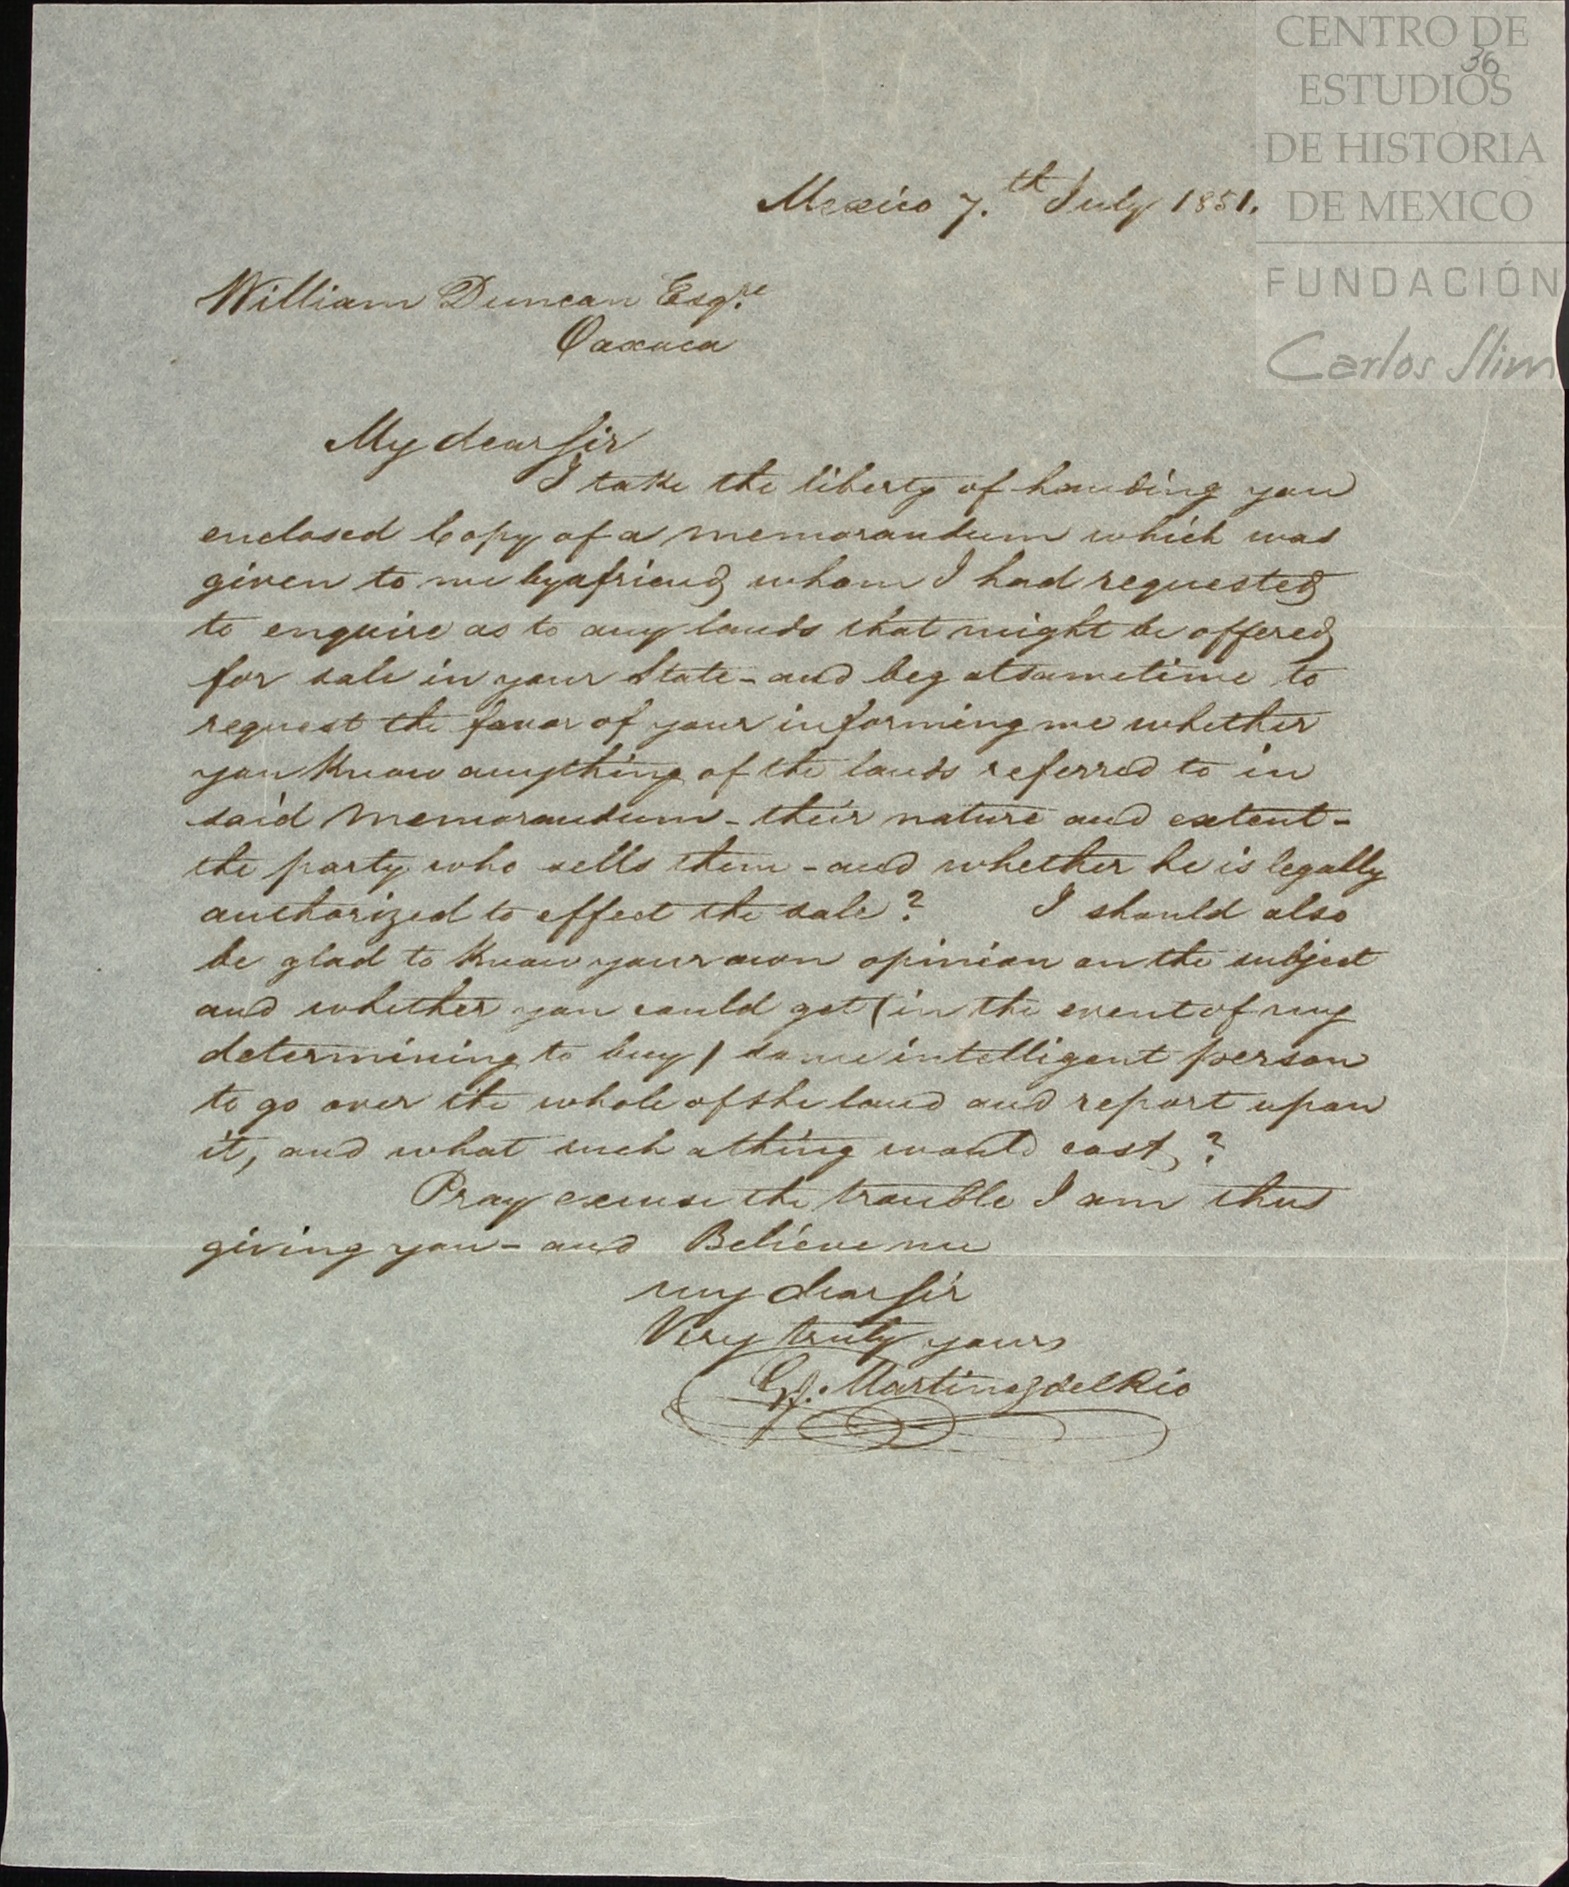 CENTRO DE
36
ESTUDIOS
DE HISTORIA
DE MEXICO
FUNDACIÓN
Carlos Slim
Mexico 7.th July 1851.
William Duncan Esqre.
Oaxaca
My dear Sir
I take the liberty of handing you
enclosed Copy of a memorandum which was
given to me by a friend whom I had requested
to enquire as to any lands that might be offered
for sale in your State - and beg at sametime to
request the favor of your informing me whether
you know anything of the lands referred to in
said memorandum - their nature and extent -
the party who sells them - and whether he is legally
authorized to effect the sale? I should also
be glad to know your own opinion on the subject
and whether you could get (in the event of my
determining to buy) some intelligent person
to go over the whole of the land and report upon
it, and what such a thing would cost?
Pray excuse the trouble I am thus
giving you - and Believe me
my dear Sir
Very truly yours
Martinez del Rio